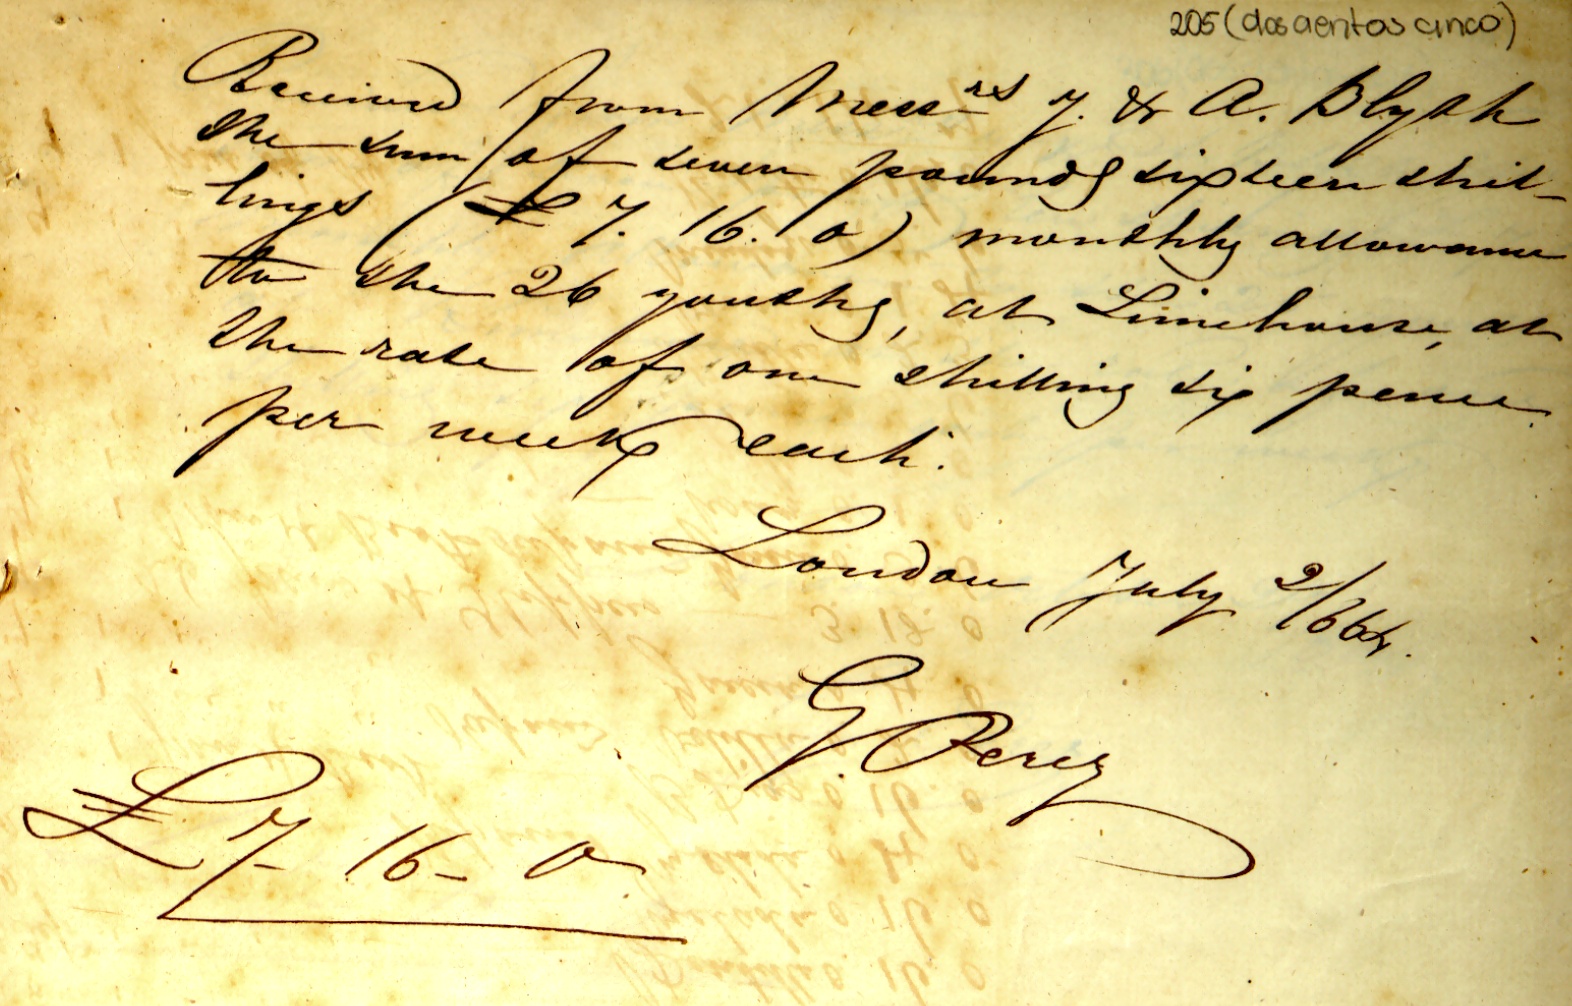 205 (doscientos cinco)
Received from Mess.rs J. & A. Blyth
the sum of seven pounds sixteen shil-
lings (£ 7. 16. 0) monthly allowance
to the 26 youths, at Limehouse, at
the rate of one shilling six pence
per week each.
London July 2/864.
G. Perez
£ 7- 16- 0